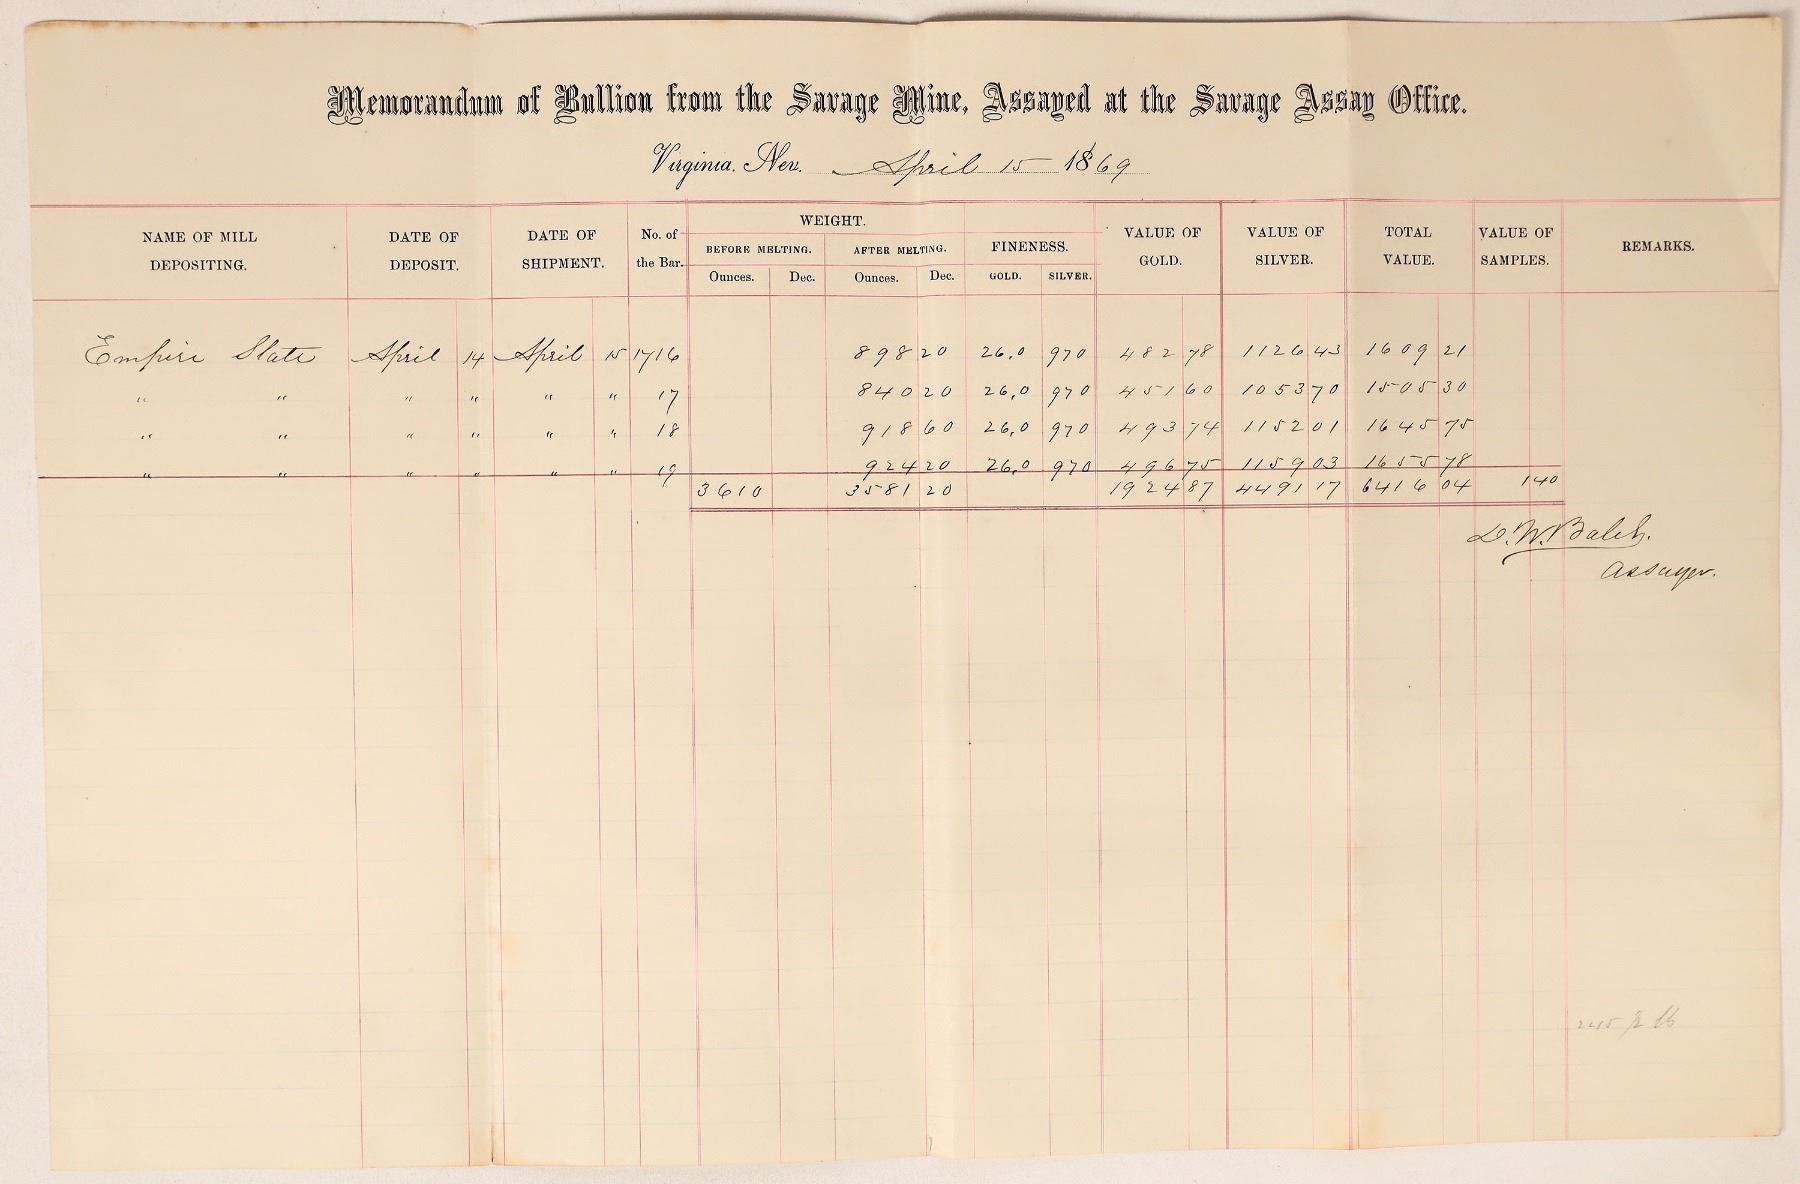 Memorandum of Bullion from the Savage Mine, Assayed at the Savage Assay Office.
Virginia, Nev. April 15 1869
NAME OF MILL DEPOSITING. DATE OF DEPOSIT. DATE OF SHIPMENT. No. of the Bar. WEIGHT. BEFORE MELTING. Ounces. Dec. AFTER MELTING. Ounces. Dec. FINENESS. GOLD. SILVER. VALUE OF GOLD. VALUE OF SILVER. TOTAL VALUE. VALUE OF SAMPLES. REMARKS.
Empire State April 14 April 15 1716 898 20 26.0 970 482 78 1126 43 1609 21
" " " " " " 17 840 20 26.0 970 451 60 1053 70 1505 30
" " " " " " 18 918 60 26.0 970 493 74 1152 01 1645 75
" " " " " " 19 924 20 26.0 970 496 75 1159 03 1655 78
3610 3581 20 1924 87 4491 17 6416 04 1 40
D. W. Balch.
Assayer.